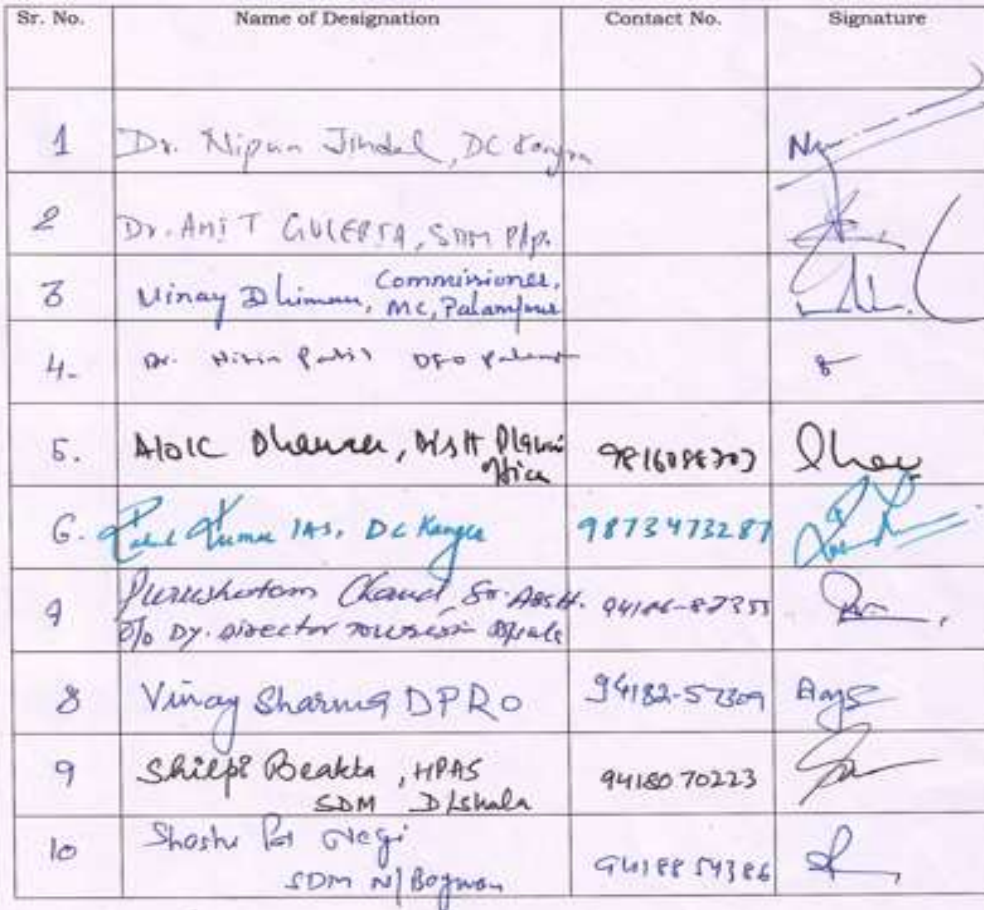 Sr. No. Name of Designation Contact No. Signature
1 Dr. Nipun Jindal, DC Kangra
2 Dr. AMIT GULERIA, SDM Plp.
3 Vinay Dhiman, Commissioner,
MC, Palampur
4. Dr. Nitin Patil DFO Palam
5. Alok Dhawan,
6. Kumar IAS, DC Kangra 9873473287
Purushotam Chand, Sr. Asstt.
O/o Dy. Director Tourism
8 Vinay Sharma DPRO 94182-57309
9 Shilpi Beakta, HPAS 94180 70223
SDM D/shala
10 Negi
SDM N/Bagwan 94188 54386